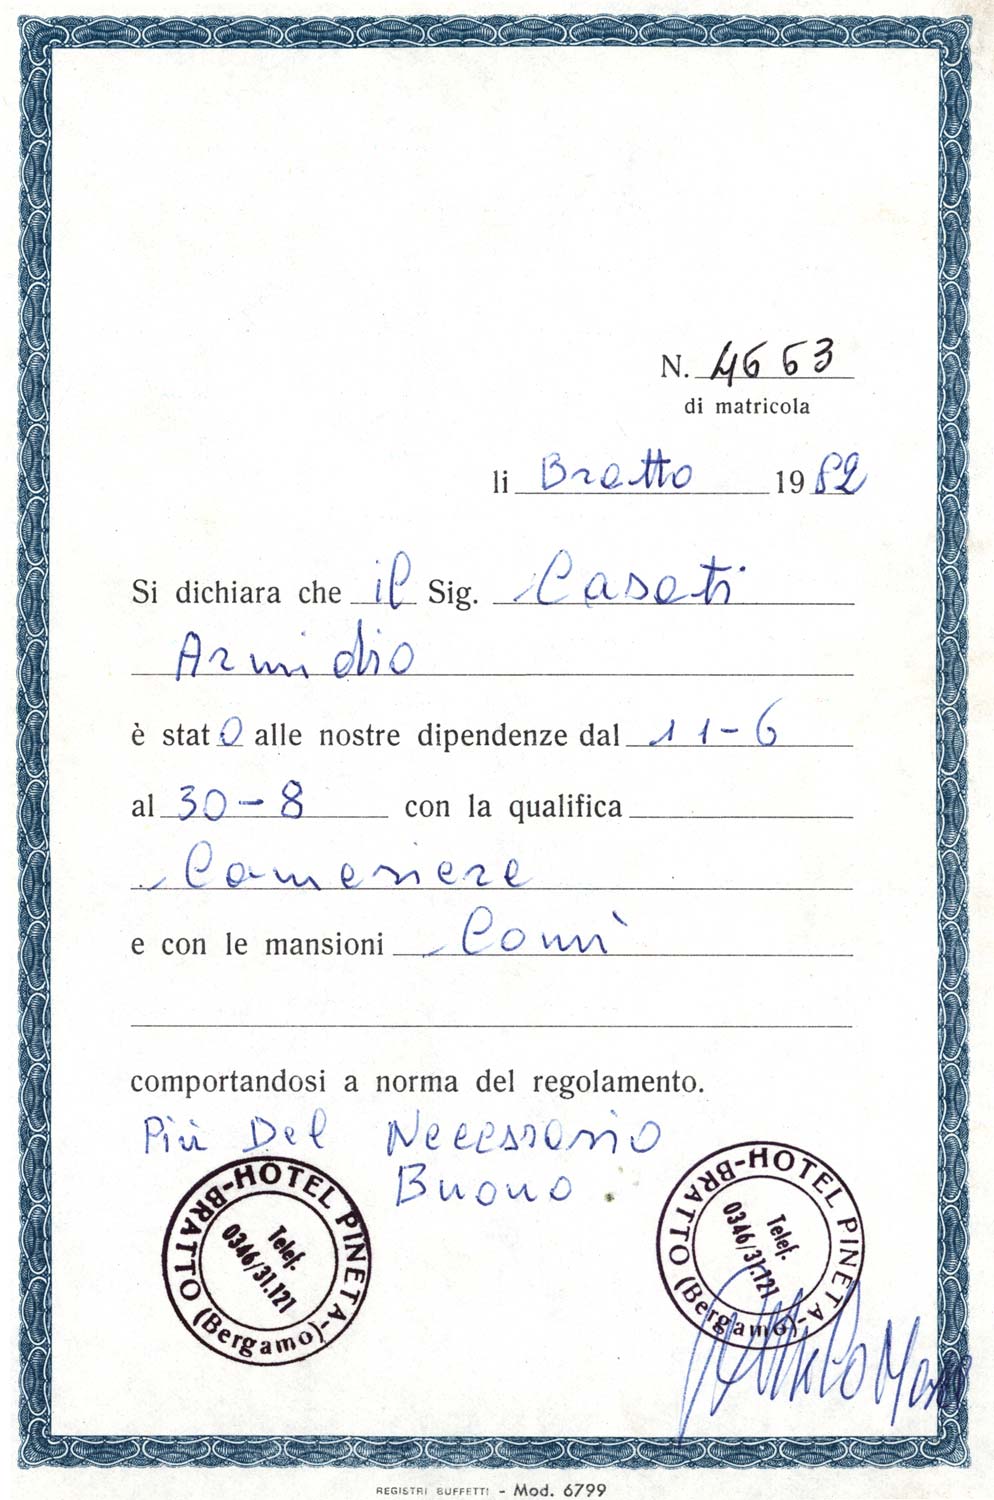 N. 4663
di matricola
li Bratto 1982
Si dichiara che il Sig. Casati
Armidio
è stato alle nostre dipendenze dal 11-6
al 30-8 con la qualifica
Cameriere
e con le mansioni Comì
comportandosi a norma del regolamento.
Più Del Necessario
Buono.
HOTEL PINETA - BRATTO (Bergamo) -
Telef.
0346/31.121
HOTEL PINETA - BRATTO (Bergamo) -
Telef.
0346/31.121
REGISTRI BUFFETTI - Mod. 6799